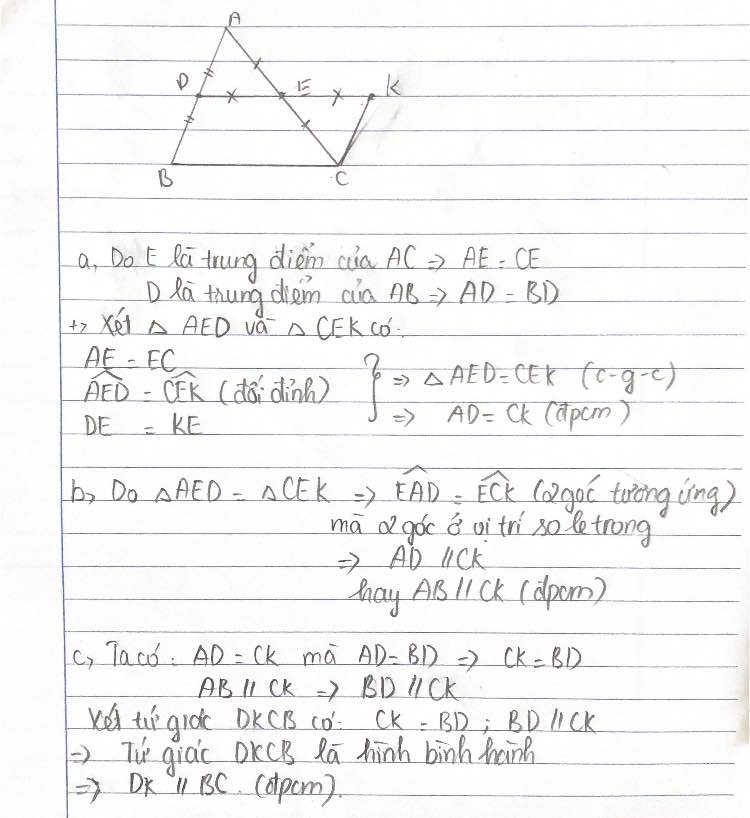 A
D
E
K
B
C
a, Do E là trung điểm của AC => AE = CE
D là trung điểm của AB => AD = BD
+> Xét △ AED và △ CEK có:
AE = EC
AED = CEK (đối đỉnh) } => △ AED = CEK (c-g-c)
DE = KE => AD = CK (đpcm)
b, Do △AED = △CEK => EAD = ECK (2 góc tương ứng)
mà 2 góc ở vị trí so le trong
=> AD // CK
hay AB // CK (đpcm)
c, Ta có: AD = CK mà AD = BD => CK = BD
AB // CK => BD // CK
Xét tứ giác DKCB có: CK = BD ; BD // CK
=> Tứ giác DKCB là hình bình hành
=> DK // BC. (đpcm).